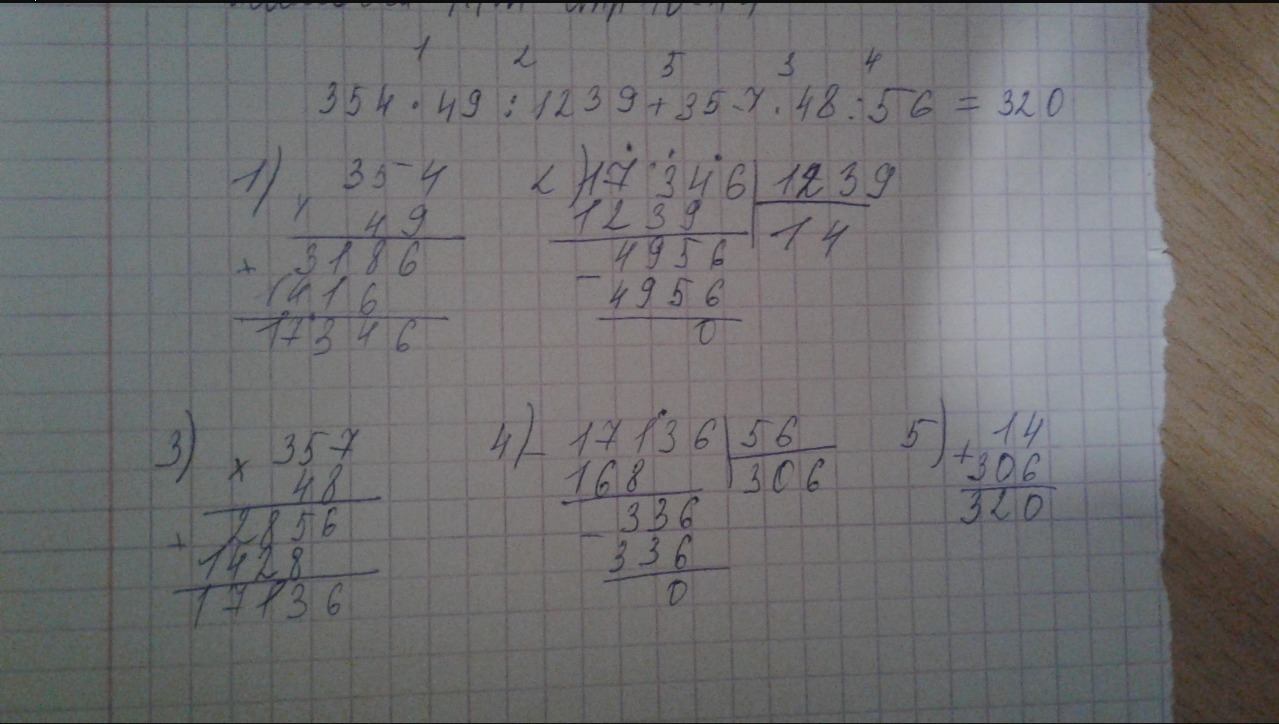 1 2 5 3 4
354 · 49 : 1239 + 357 · 48 : 56 = 320
1) 354
× 49
+ 3186
1416
17346
2) 17346 | 1239
1239 | 14
- 4956
4956
0
3) × 357
48
+ 2856
1428
17136
4) - 17136 | 56
168 | 306
- 336
336
0
5) + 14
306
320